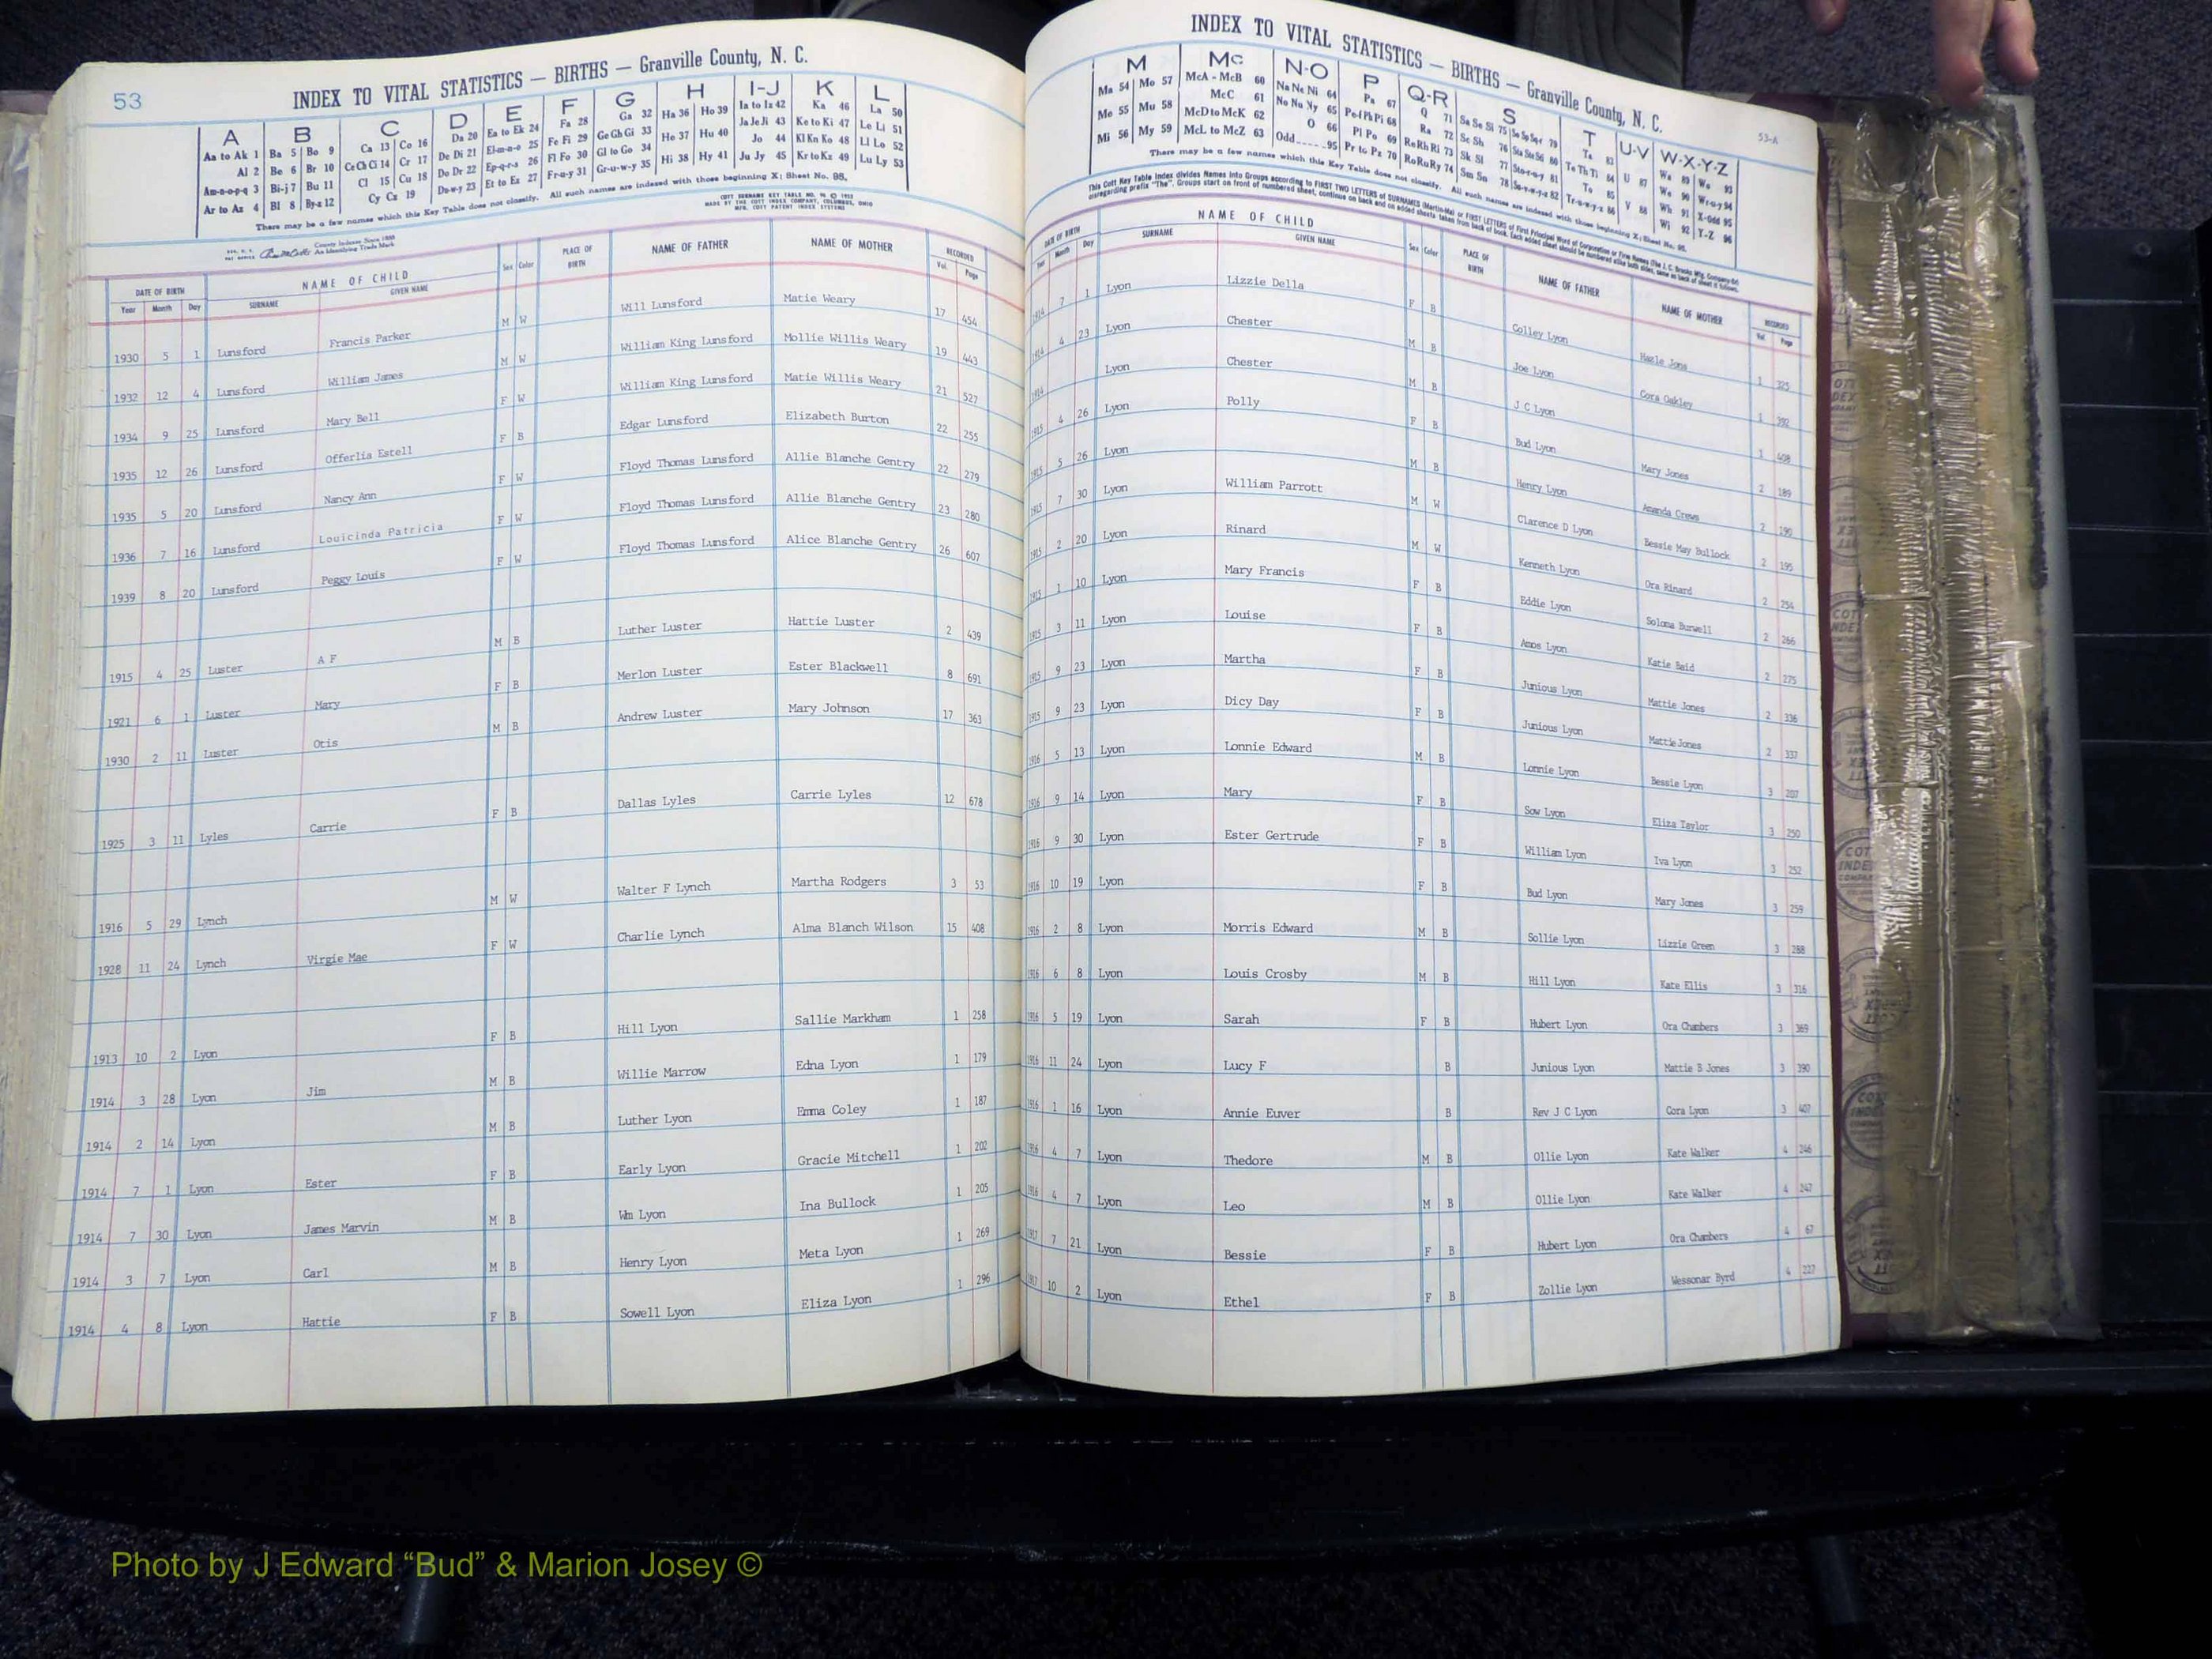 53
INDEX TO VITAL STATISTICS — BIRTHS — Granville County, N. C.
A B C D E F G H I-J K L
Aa to Ak 1 Ba 5 Bo 9 Ca 13 Co 16 Da 20 Ea to Ek 24 Fa 28 Ga 32 Ha 36 Ho 39 Ia to Iz 42 Ka 46 La 50
Al 2 Be 6 Br 10 Ce Ch Ci 14 Cr 17 De Di 21 El-m-n-o 25 Fe Fi 29 Ge Gh Gi 33 He 37 Hu 40 Ja Je Ji 43 Ke to Ki 47 Le Li 51
Am-n-o-p-q 3 Bi-j 7 Bu 11 Cl 15 Cu 18 Do Dr 22 Ep-q-r-s 26 Fl Fo 30 Gl to Go 34 Hi 38 Hy 41 Jo 44 Kl Kn Ko 48 Ll Lo 52
Ar to Az 4 Bl 8 By-z 12 Cy Cz 19 Du-w-y 23 Et to Ez 27 Fr-u-y 31 Gr-u-w-y 35 Ju Jy 45 Kr to Kz 49 Lu Ly 53
There may be a few names which this Key Table does not classify. All such names are indexed with those beginning X; Sheet No. 95.
County Indexes Since 1888
An Identifying Trade Mark
MADE BY THE COTT INDEX COMPANY, COLUMBUS, OHIO
DATE OF BIRTH NAME OF CHILD Sex Color PLACE OF BIRTH NAME OF FATHER NAME OF MOTHER RECORDED
Year Month Day SURNAME GIVEN NAME Vol. Page
1930 5 1 Lunsford Francis Parker M W Will Lunsford Matie Weary 17 454
1932 12 4 Lunsford William James M W William King Lunsford Mollie Willis Weary 19 443
1934 9 25 Lunsford Mary Bell F W William King Lunsford Matie Willis Weary 21 527
1935 12 26 Lunsford Offerlia Estell F B Edgar Lunsford Elizabeth Burton 22 255
1935 5 20 Lunsford Nancy Ann F W Floyd Thomas Lunsford Allie Blanche Gentry 22 279
1936 7 16 Lunsford Louicinda Patricia F W Floyd Thomas Lunsford Allie Blanche Gentry 23 280
1939 8 20 Lunsford Peggy Louis F W Floyd Thomas Lunsford Alice Blanche Gentry 26 607
1915 4 25 Luster A F M B Luther Luster Hattie Luster 2 439
1921 6 1 Luster Mary F B Merlon Luster Ester Blackwell 8 691
1930 2 11 Luster Otis M B Andrew Luster Mary Johnson 17 363
1925 3 11 Lyles Carrie F B Dallas Lyles Carrie Lyles 12 678
1916 5 29 Lynch M W Walter F Lynch Martha Rodgers 3 53
1928 11 24 Lynch Virgie Mae F W Charlie Lynch Alma Blanch Wilson 15 408
1913 10 2 Lyon F B Hill Lyon Sallie Markham 1 258
1914 3 28 Lyon Jim M B Willie Marrow Edna Lyon 1 179
1914 2 14 Lyon M B Luther Lyon Emma Coley 1 187
1914 7 1 Lyon Ester F B Early Lyon Gracie Mitchell 1 202
1914 7 30 Lyon James Marvin M B Wm Lyon Ina Bullock 1 205
1914 3 7 Lyon Carl M B Henry Lyon Meta Lyon 1 269
1914 4 8 Lyon Hattie F B Sowell Lyon Eliza Lyon 1 296
INDEX TO VITAL STATISTICS — BIRTHS — Granville County, N. C.
53-A
M Mc N-O P Q-R S T U-V W-X-Y-Z
Ma 54 Mo 57 McA - McB 60 Na Ne Ni 64 Pa 67 Q 71 Sa Se Si 75 So Sp Sq-r 79 Ta 83 Wa 89 Wo 93
Me 55 Mu 58 McC 61 No Nu Ny 65 Pe-f Ph Pi 68 Ra 72 Sc Sh 76 Sta Ste Sti 80 Te Th Ti 84 U 87 We 90 Wr-u-y 94
Mi 56 My 59 McD to McK 62 O 66 Pl Po 69 Re Rh Ri 73 Sk Sl 77 Sto-r-u-y 81 To 85 V 88 Wh 91 X-Odd 95
McL to McZ 63 Odd 95 Pr to Pz 70 Ro Ru Ry 74 Sm Sn 78 Su-v-w-y-z 82 Tr-u-w-y-z 86 Wi 92 Y-Z 96
There may be a few names which this Key Table does not classify. All such names are indexed with those beginning X; Sheet No. 95.
This Cott Key Table Index divides Names into Groups according to FIRST TWO LETTERS of SURNAMES (Martin-Ma) or FIRST LETTERS of First Principal Word of Corporation or Firm Names
disregarding prefix "The". Groups start on front of numbered sheet, continue on back and on added sheets taken from back of book. Each added sheet should be numbered alike both sides, same as back of sheet it follows.
DATE OF BIRTH NAME OF CHILD Sex Color PLACE OF BIRTH NAME OF FATHER NAME OF MOTHER RECORDED
Year Month Day SURNAME GIVEN NAME Vol. Page
1914 7 1 Lyon Lizzie Della F B Colley Lyon Hazle Jons 1 325
1914 4 23 Lyon Chester M B Joe Lyon Cora Oakley 1 392
1914 Lyon Chester M B J C Lyon 1 408
1915 4 26 Lyon Polly F B Bud Lyon Mary Jones 2 189
1915 5 26 Lyon M B Henry Lyon Amanda Crews 2 190
1915 7 30 Lyon William Parrott M W Clarence D Lyon Bessie May Bullock 2 195
1915 2 20 Lyon Rinard M W Kenneth Lyon Ora Rinard 2 254
1915 1 10 Lyon Mary Francis F B Eddie Lyon Soloma Burwell 2 266
1915 3 11 Lyon Louise F B Amos Lyon Katie Baid 2 275
1915 9 23 Lyon Martha F B Junious Lyon Mattie Jones 2 336
1915 9 23 Lyon Dicy Day F B Junious Lyon Mattie Jones 2 337
1916 5 13 Lyon Lonnie Edward M B Lonnie Lyon Bessie Lyon 3 207
1916 9 14 Lyon Mary F B Sow Lyon Eliza Taylor 3 250
1916 9 30 Lyon Ester Gertrude F B William Lyon Iva Lyon 3 252
1916 10 19 Lyon F B Bud Lyon Mary Jones 3 259
1916 2 8 Lyon Morris Edward M B Sollie Lyon Lizzie Green 3 288
1916 6 8 Lyon Louis Crosby M B Hill Lyon Kate Ellis 3 316
1916 5 19 Lyon Sarah F B Hubert Lyon Ora Chambers 3 369
1916 11 24 Lyon Lucy F B Junious Lyon Mattie B Jones 3 390
1916 1 16 Lyon Annie Euver B Rev J C Lyon Cora Lyon 3 407
1916 4 7 Lyon Thedore M B Ollie Lyon Kate Walker 4 246
1916 4 7 Lyon Leo M B Ollie Lyon Kate Walker 4 247
1917 7 21 Lyon Bessie F B Hubert Lyon Ora Chambers 4 67
1917 10 2 Lyon Ethel F B Zollie Lyon Wessonar Byrd 4 227
Photo by J Edward “Bud” & Marion Josey ©